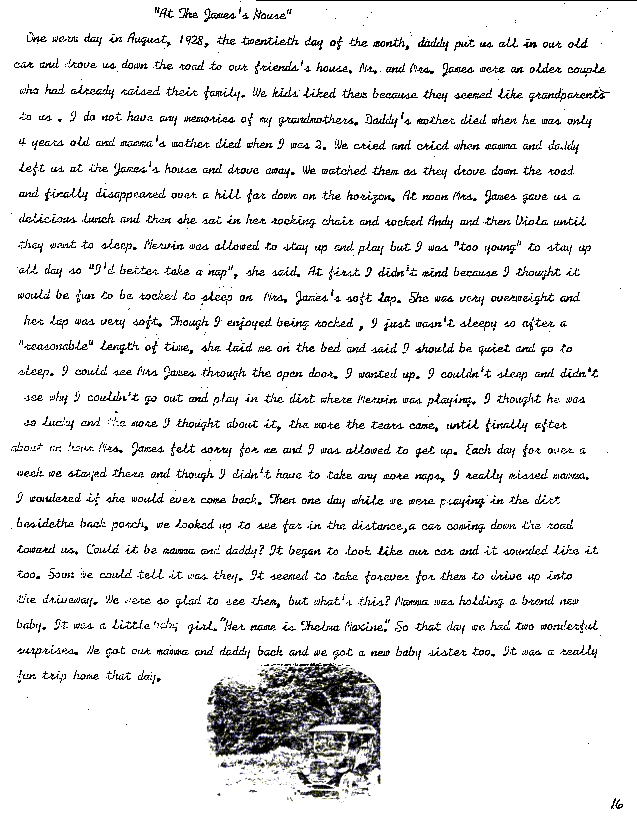 "At The James's House"
One warm day in August, 1928, the twentieth day of the month, daddy put us all in our old
car and drove us down the road to our friends's house. Mr. and Mrs. James were an older couple
who had already raised their family. We kids liked them because they seemed like grandparents
to us. I do not have any memories of my grandmothers. Daddy's mother died when he was only
4 years old and mamma's mother died when I was 2. We cried and cried when mamma and daddy
left us at the James's house and drove away. We watched them as they drove down the road
and finally disappeared over a hill far down on the horizon. At noon Mrs. James gave us a
delicious lunch and then she sat in her rocking chair and rocked Andy and then Viola until
they went to sleep. Merwin was allowed to stay up and play but I was "too young" to stay up
all day so "I'd better take a nap", she said. At first I didn't mind because I thought it
would be fun to be rocked to sleep on Mrs. James's soft lap. She was very overweight and
her lap was very soft. Though I enjoyed being rocked, I just wasn't sleepy so after a
"reasonable" length of time, she laid me on the bed and said I should be quiet and go to
sleep. I could see Mrs James through the open door. I wanted up. I couldn't sleep and didn't
see why I couldn't go out and play in the dirt where Merwin was playing. I thought he was
so lucky and the more I thought about it, the more the tears came, until finally after
about an hour Mrs. James felt sorry for me and I was allowed to get up. Each day for over a
week we stayed there and though I didn't have to take any more naps, I really missed mamma.
I wondered if she would ever come back. Then one day while we were playing in the dirt
besidethe back porch, we looked up to see far in the distance,a car coming down the road
toward us. Could it be mamma and daddy? It began to look like our car and it sounded like it
too. Soon we could tell it was they. It seemed to take forever for them to drive up into
the driveway. We were so glad to see them, but what's this? Mamma was holding a brand new
baby. It was a little baby girl. "Her name is Thelma Maxine." So that day we had two wonderful
surprises. We got our mamma and daddy back and we got a new baby sister too. It was a really
fun trip home that day.
16